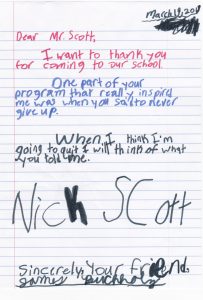 Dear Mr. Scott,
I want to thank you
for coming to our school.
One part of your
program that really inspird
me was when you said to never
give up.
When I think I'm
going to quit I will think of what
you told me.
Nick Scott
Sincerely, Your friend.
James